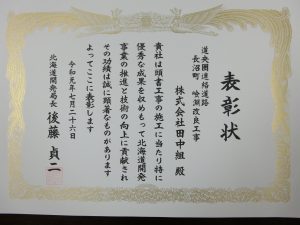 表彰状
道央圏連絡道路
長沼町 嶮淵改良工事
株式会社田中組 殿
貴社は頭書工事の施工に当たり特に
優秀な成果を収めもって北海道開発
事業の推進と技術の向上に貢献され
その功績は誠に顕著なものがあります
よってここに表彰します
令和元年七月二十六日
北海道開発局長 後藤 貞二